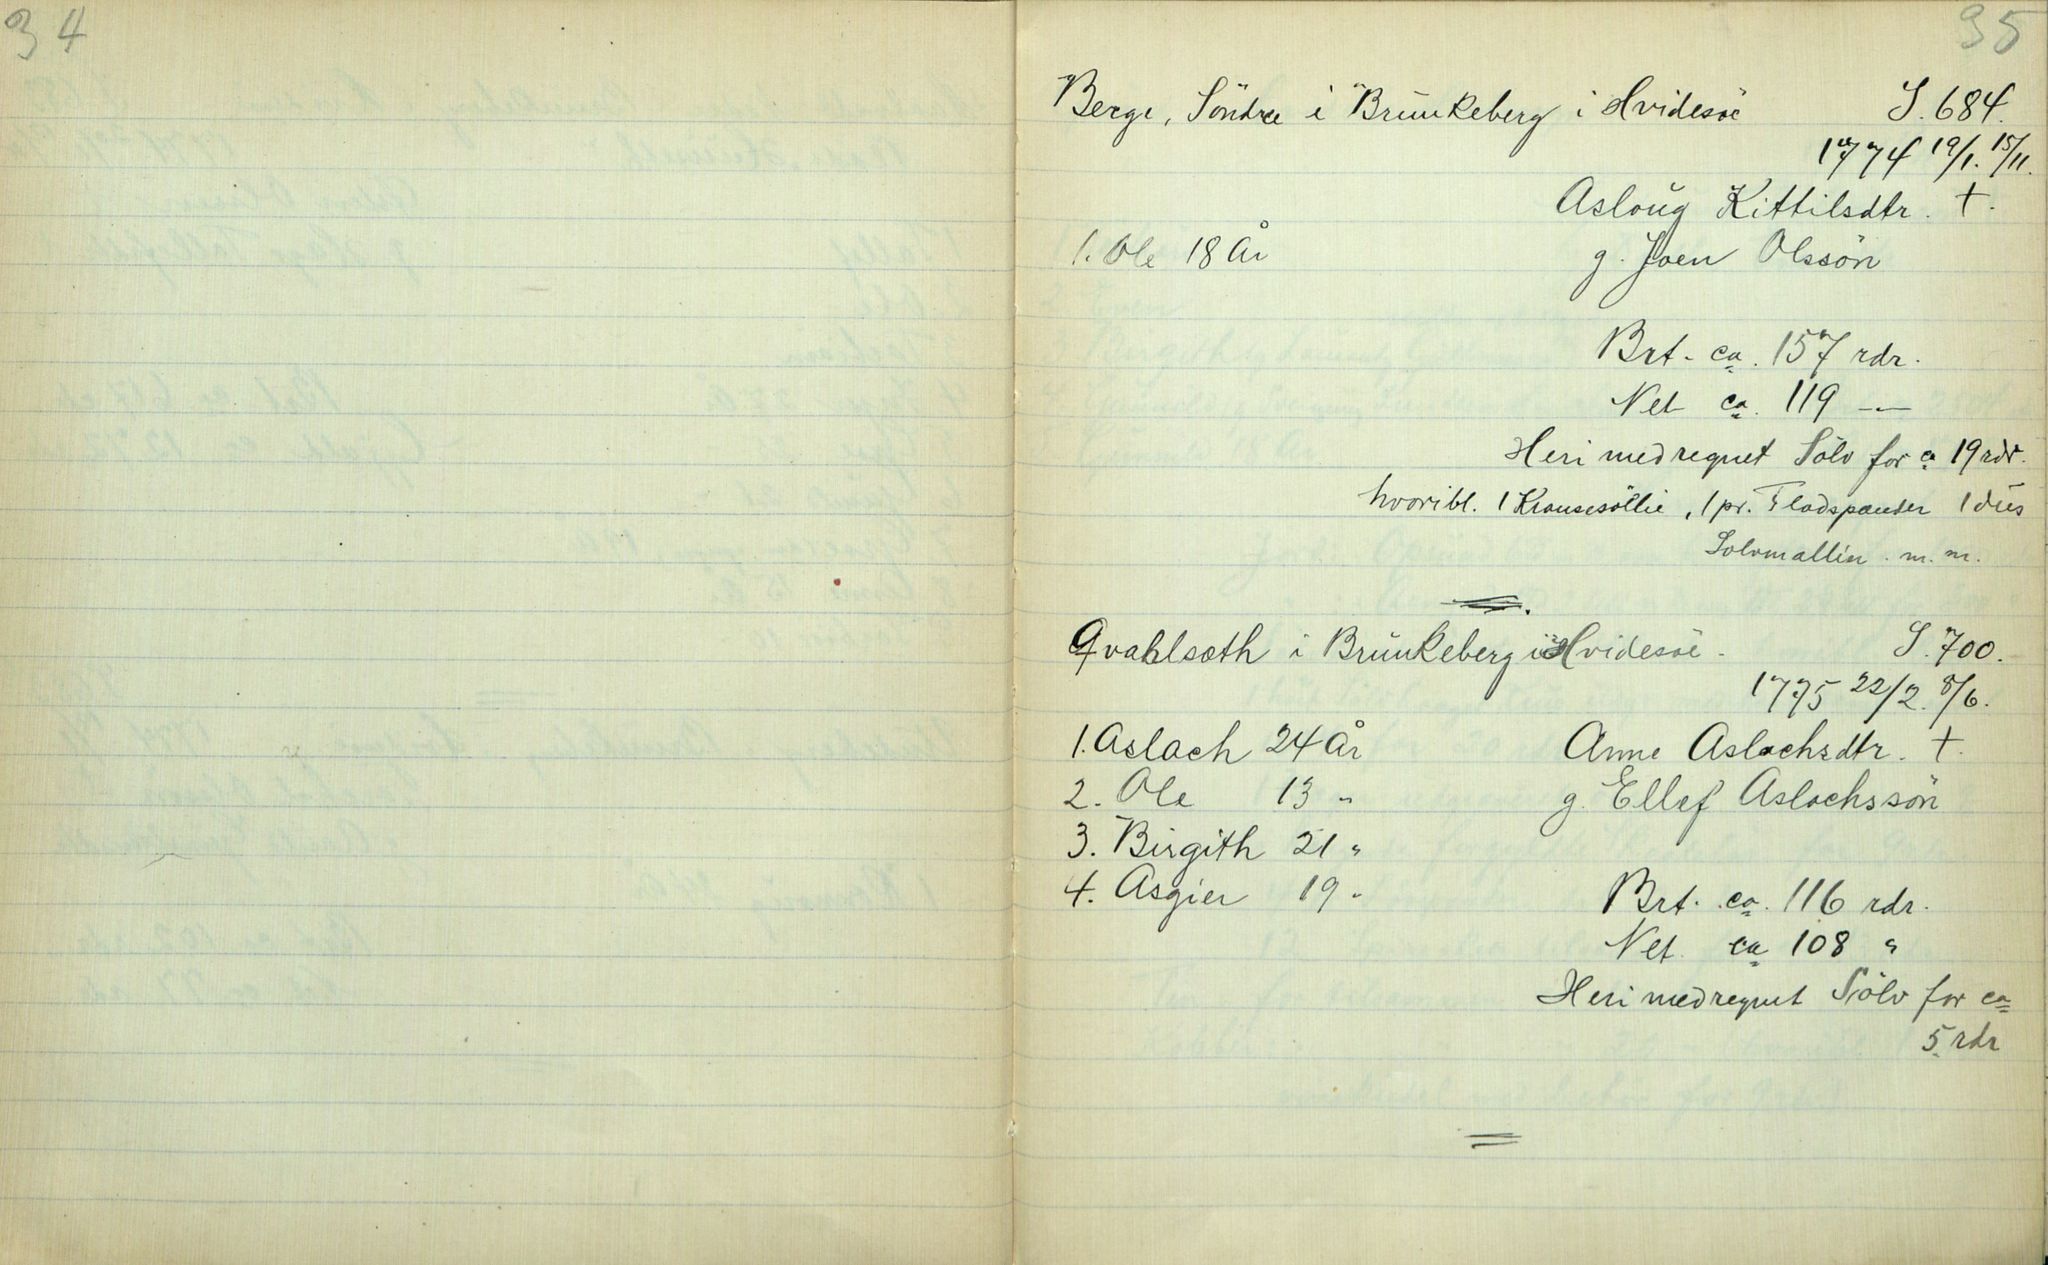 34
35
Berge, Söndre i Brŭnkeberg i Hvidesöe S. 684.
1774 19/1. 15/11.
Asloŭg Kittilsdtr. †.
1. Ole 18 År g. Joen Olssön
Brt. ca. 157 rdr.
Net ca. 119 —
Heri medregnet Sölv for ca 19 rdr.
hvoribl. 1 Krausesöllie, 1 pr. Fladspænder 1 dŭs
Solvmallin. m. m.
Qvahlsæth i Brŭnkeberg i Hvidesöe. S. 700.
1775 22/2. 8/6.
1. Aslach 24 År Anne Aslachsdtr. †.
2. Ole 13 " g. Ellef Aslachssön
3. Birgith 21 "
4. Asgier 19 " Brt. ca. 116 rdr.
Net. ca 108 "
Heri medregnet Sölv for ca
5 rdr